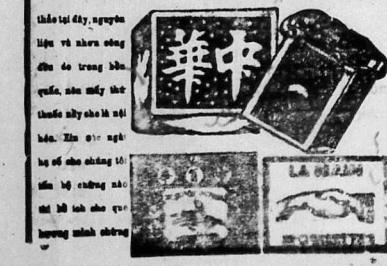 thảo tại đây, nguyên
liệu và nhơn công
đều do trong bồn
quốc, nên mấy thứ
thuốc nầy cho là nội
hóa. Xin các ngài
hạ cố cho chúng tôi
tấn bộ chừng nào
thì bổ ích cho quê
hương mình chừng
華中
LA